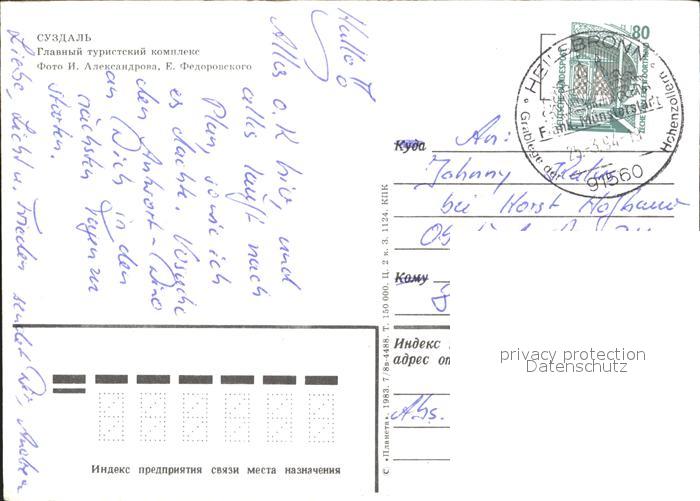 СУЗДАЛЬ
Главный туристский комплекс
Фото И. Александрова, Е. Федоровского
Hallo
Alles o.K. hier, und
alles läuft nach
Plan, so wie ich
es dachte. Versuche
den Antwort-
an Dich in den
nächsten Tagen zu
starten.
Liebe, Licht u. Frieden sendet Dir, Andrea
80
DEUTSCHE BUNDESPOST
HEILSBRONN
Grablege der Hohenzollern
Fränk. Münsterstadt
25.-3.94
91560
Куда
An:
Johnny
bei Horst
Кому
Индекс
адрес от
Abs.
Индекс предприятия связи места назначения
© «Планета». 1983. 7/8в-4488. Т. 150 000. Ц. 2 к. З. 1124. КПК
privacy protection
Datenschutz